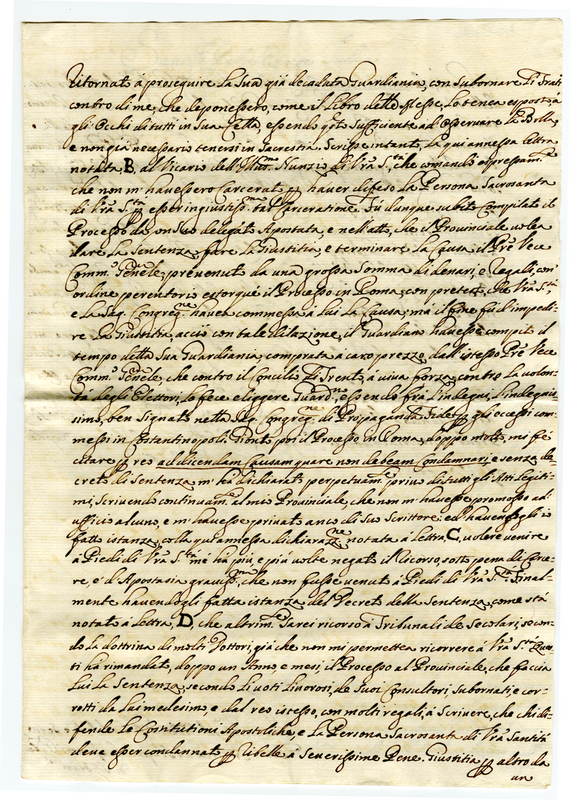 Ritornato à proseguire la Sua già decaduta Guardiania, con subornare li Frati
contro di me, che deponessero, come il libro delle Messe, lo tenea esposto à
gli Occhi di tutti in Sua Cella, essendo q.to sufficiente ad Osservare la Bolla,
e non già necessario tenersi in Sacrestia. Scrisse intanto, la qui annessa lettra
notata, B, al Vicario dell' Nunzio di Vr̃a S.tà, che comandò espressam.te
che non m'havessero Carcerato, haver difeso la Persona Sacrosanta
di Vr̃a S.tà esser ingiustiss.ma tal Carceratione. Fù dunque subito Compilato il
Processo da un Suo delegato Apostata, e nell'atto, che il Provinciale volea
dare la Sentenza, fare la Giustitia, e terminare la Causa, il Prẽ Vece
Comm. Gen̄ele, prevenuto da una grossa Somma di denari, e Regali, con
ordine perentorio estorquè il Processo in Roma, con pretesto, che Vr̃a S.tà
e la Sag. Congreg.ne havea commessa à lui la Causa; mà il fine fù d'impedi=
re la Giustitia, acciò con tale dilazione, il Guardiano havesse compito il
tempo della Sua Guardiania comprata à caro prezzo, dall'istesso Prẽ Vece
Comm. Gen̄ele, che contro il Concilio di Trento, à viva forza, contro la volon=
tà degli Elettori, lo fece eliggere Guard.no essendo frà l'indegni, l'indegnis=
simo, ben Signato nella Sag. Congreg.ne di Propaganda Fede, eccessi com=
messi in Costentinopoli. Gionto poi il Processo in Roma, doppo molto, mi fè
citare reo ad dicendam Causam quare non debeam Condamnari, e senza de=
creto di Sentenza, m'hà dichiarato perpetuam.te privo di tutti gli Atti legiti=
mi, Scrivendo continuam.te al mio Provinciale, che non m'havesse promosso ad
ufficio alcuno, e m'havesse privato anco di Suo Scrittore: ed havendogli io
fatto istanza, colla qui annessa dichiaraz.ne notata à lettra, C, volere venire
à Piedi di Vr̃a S.tà mè hà più, e più volte negato il Ricorso, sotto pena di Carce=
re, e d'Apostasia graviss.ma, che non fusse venuto à Piedi di Vr̃a S.tà Final=
mente havendogli fatta istanza del Decreto della Sentenza, come stà
notato à lettra, D, che altrim.te Sarei ricorso à Tribunali de Secolari, secon=
do la dottrina di molti Dottori, già che non mi permettea ricorrere à Vr̃a S.tà Ques=
ti hà rimandato, doppo un Anno, e mesi, il Processo al Provinciale, che faccia
lui la Sentenza, secondo li voti livorosi, de Suoi Consultori, Subornati, e cor=
rotti da lui medesimo, e dal reo istesso, con molti regali, à Scrivere, che chi di=
fende le Costitutioni Apostoliche, e la Persona Sacrosanta di Vr̃a Santità
deve esser condannato Ribelle à Severissime Pene. Giustitia altro da
un